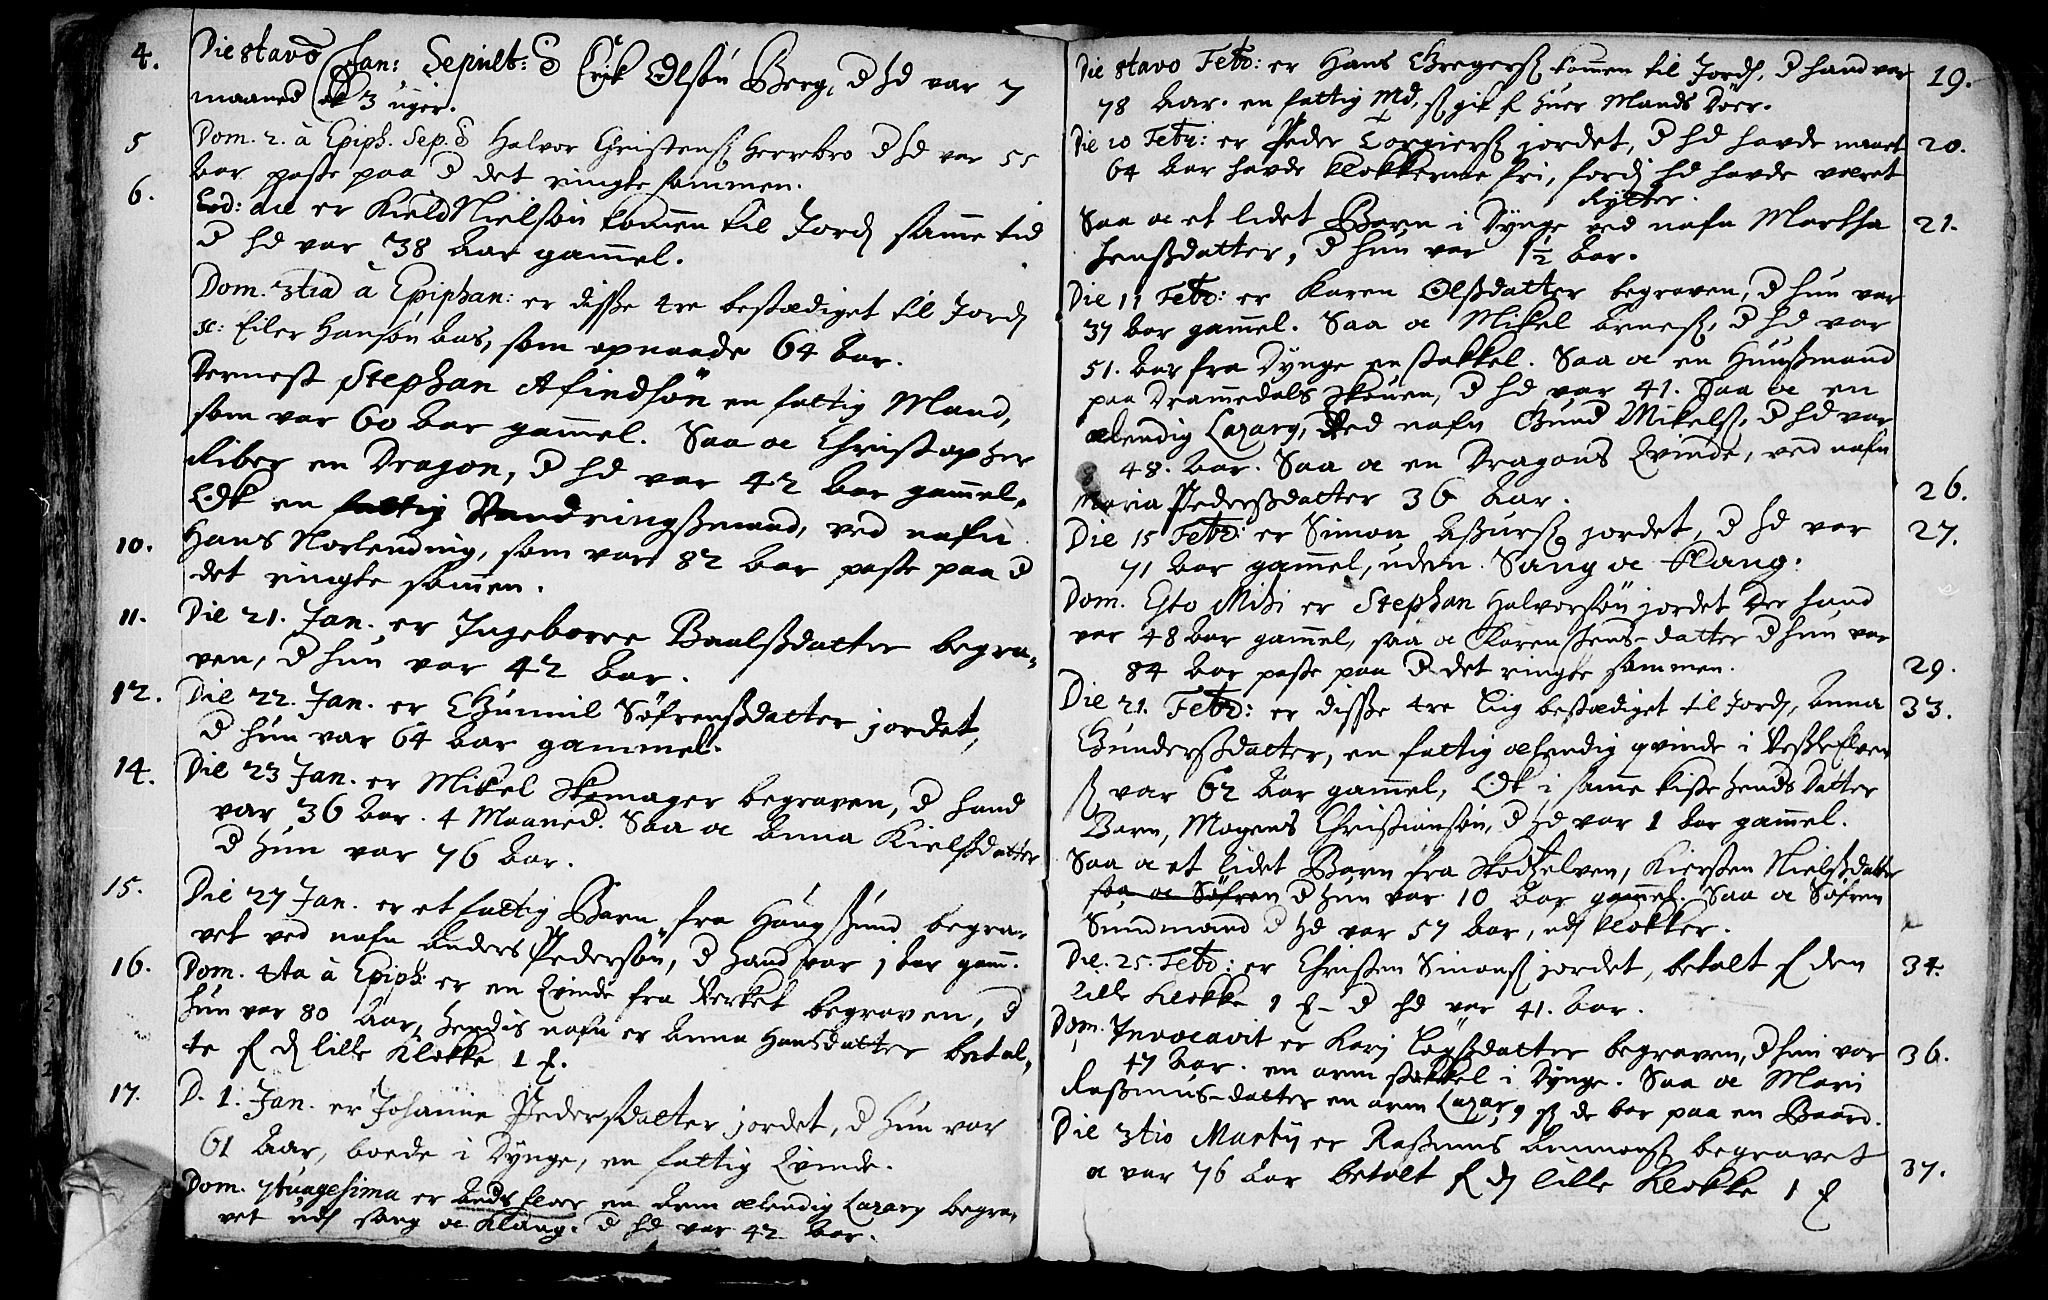 4. Die 8tavo Jan: Sepult: Erik Olsøn Berg, d hd var 7
maaned ok 3 uger.
5 Dom. 2. à Epiph. Sep. Halvor Christens Herrebro d hd var 55
Aar paste paa d det ringte sammen.
6. Eod: die er Kield Nielsøn komen til Jord samme tid
d hd var 38 Aar gamel.
Dom. 3tia à Epiphan: er disse 4re bestædiget til Jord
sc: Eiler Hansøn Aas, som opnaade 64 Aar.
Dernest Stephan Afindsøn en fattig Mand,
som var 60 Aar gamel. Saa oc Christopher
Riber en Dragon, d hd var 42 Aar gamel.
Ok en fattig Vandringsmand, ved nafn
10. Hans Norlending, som var 82 Aar paste paa d
det ringte samen.
11. Die 21. Jan. er Ingeborre Baalsdatter begra-
ven, d hun var 42 Aar.
12. Die 22. Jan. er Gunnil Søfrensdatter jordet,
d hun var 64 Aar gammel.
14. Die 23 Jan. er Mikel Skomager begraven, d hand
var 36 Aar. 4 Maaned. Saa oc Anna Kielsdatter
d hun var 76 Aar.
15. Die 27 Jan. er et fattig Barn fra Haugsund begra-
vet ved nafn Anders Pedersøn, d hand var 1 Aar gam.
16. Dom. 4ta à Epiph: er en Qvinde fra Verket begraven, d
hun var 80 Aar, hendis nafn er Anna Hansdatter betal-
te f d lille Klokke 1
17. D. 1. Jan. er Johanne Pedersdatter jordet, d hun var
61 Aar, boede i Dynge, en fattig Qvinde.
Dom. 7tuagesima er en Arm elendig Lazary begra-
vet uden sang oc Klang. d hd var 42 Aar.
Die 8tavo Febr: er Hans Gregers komen til Jord, d hand var 19.
78 Aar. en fattig Md, gik f huer Mands Døer.
Die 10 Febr: er Peder Torgiers jordet, d hd havde naaet 20.
64 Aar havde klokkerne fri, fordi hd havde været
Rytter.
Saa oc et lidet Barn i Dynge ved nafn Martha 21.
Jensdatter, d hun var 1½ Aar.
Die 11 Febr: er Karen Olsdatter begraven, d hun var
37 Aar gamel. Saa oc Mikel Arnes, d hd var
51. Aar fra Dynge en stakkel. Saa oc en Huusmand
paa Dramedals Skouen, d hd var 41. Saa oc en
elendig Lazary, Ved nafn Gund Mikels, d hd var
48. Aar. Saa oc en Dragons Qvinde, ved nafn
Maria Pedersdatter 36 Aar. 26.
Die 15 Febr: er Simon Assurs jordet, d hd var 27.
71 Aar gamel, uden Sang oc Klang.
Dom. Esto Mihi er Stephan Halvorsøn jordet Der hand
var 48 Aar gamel, saa oc Karen Jens-datter d hun var
84 Aar paste paa d det ringte sammen. 29.
Die 21. Febr: er disse 4re Lig bestædiget til Jord, Anna 33.
Gundersdatter, en fattig elendig qvinde i Vestfelver
var 62 Aar gamel, Ok i samme kiste hends Datter
Barn, Mogens Christiansøn, d hd var 1 Aar gamel.
Saa oc et Lidet Barn fra Skodtzelven, Kiersten Nielsdatter
saa oc Søfren d hun var 10 Aar gamel. Saa oc Søfren
Sundmand d hd var 57 Aar, uden klokker.
Die. 25. Febr: er Christen Simons jordet, betalt f den 34.
lille Klokke 1 d hd var 41. Aar.
Dom. Invocavit er Kari datter begraven, d hun var 36.
47 Aar. en arm stakkel i Dynge. Saa oc Mari
Rasmus-datter en arm Lazary de bar paa en Baard.
Die 3tio Martij er Rasmus begravet
oc var 76 Aar betalt f d lille Klokke 1 37.